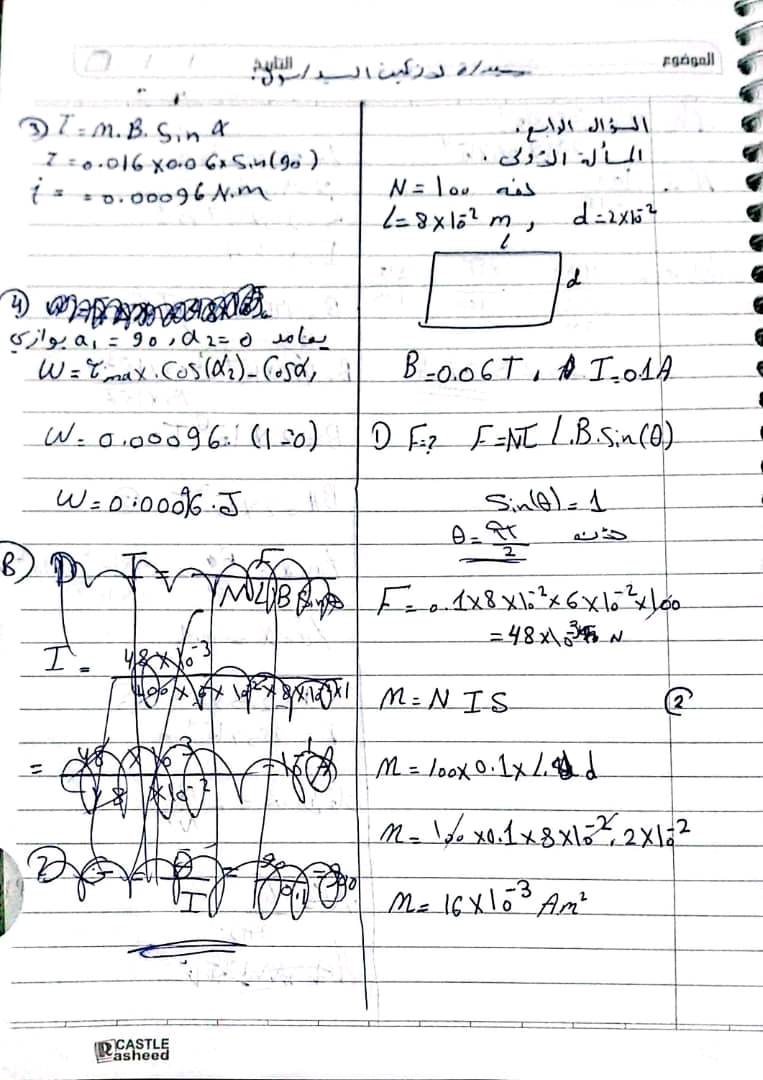 الموضوع
التاريخ
السؤال الرابع:
المسألة الأولى:
N = 100 لفه
L = 8 × 10⁻² m , d = 2 × 10⁻²
l
d
B = 0.06 T , I = 0.1 A
① F = ? F = NI L.B. Sin(θ)
Sin(θ) = 1
θ = π/2
F = 0.1 × 8 × 10⁻² × 6 × 10⁻² × 100
= 48 × 10⁻³ N
M = N I S ②
M = 100 × 0.1 × L. d
M = 100 × 0.1 × 8 × 10⁻². 2 × 10⁻²
M = 16 × 10⁻³ Am²
③ T = M. B. Sin α
T = 0.016 × 0.06 × Sin(90)
= 0.00096 N.m
4)
يعامد α₁ = 90 , α₂ = 0 يوازي
W = τmax . Cos(α₂) - Cosα₁
W = 0.00096. (1 - 0)
W = 0.00096. J
B)
I = 48 × 10⁻³
CASTLE
Rasheed